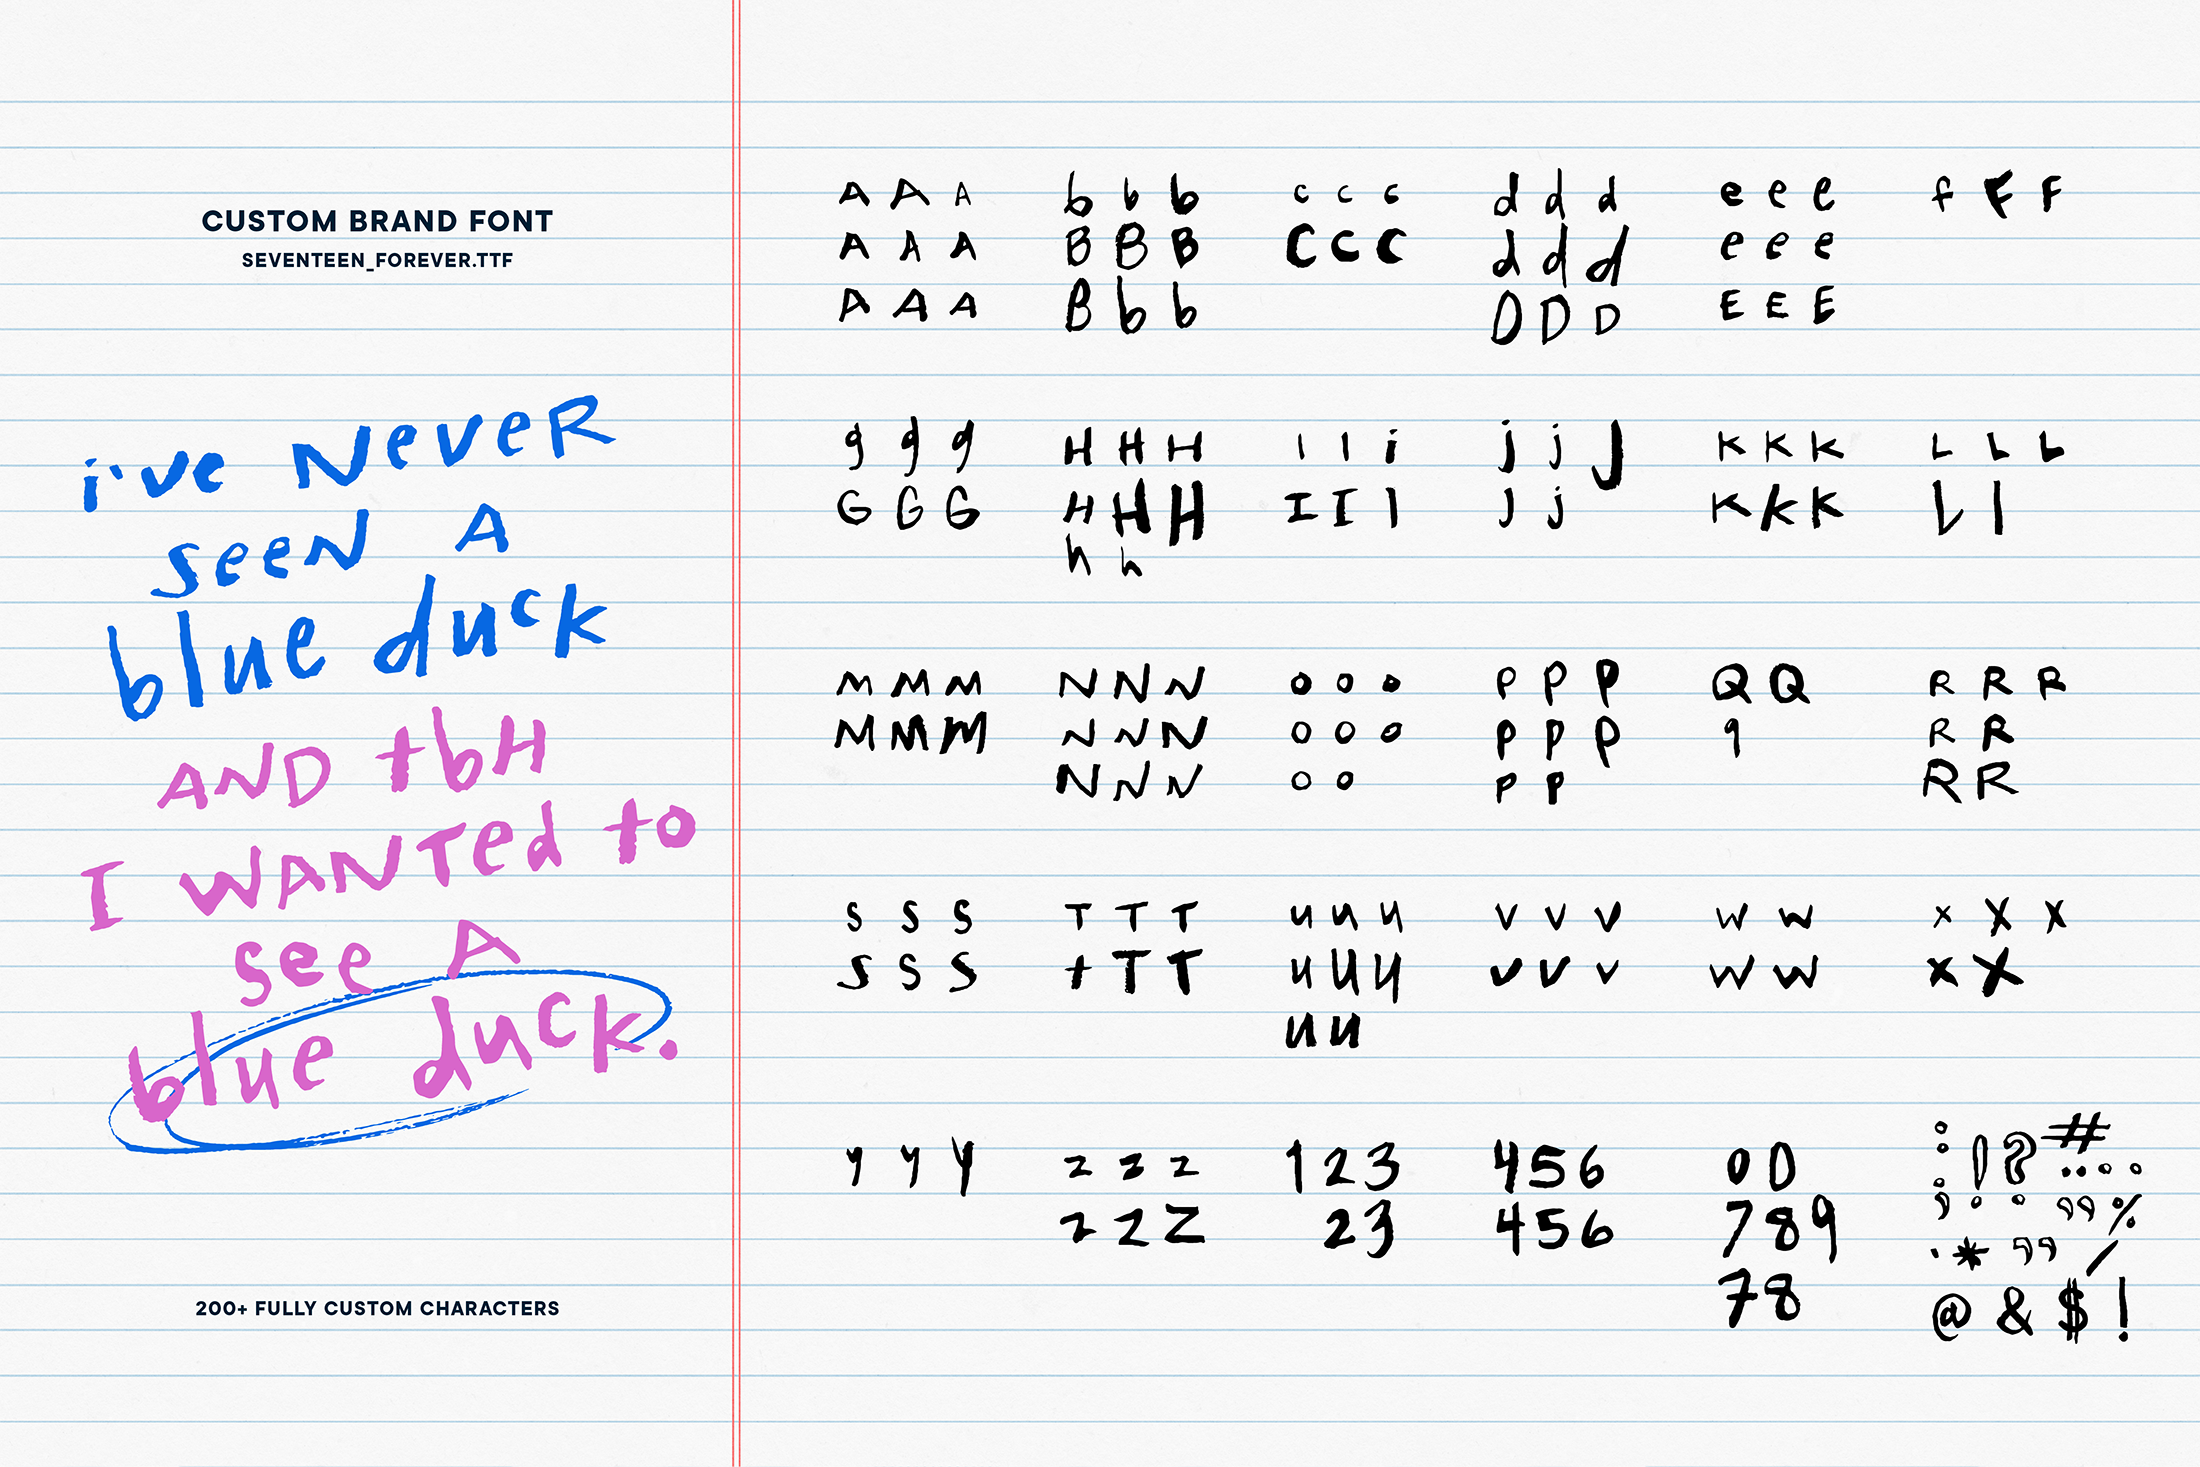 CUSTOM BRAND FONT
SEVENTEEN_FOREVER.TTF
i've NeveR
seeN A
blue duck
AND tbH
I WANTed to
see A
blue duck.
200+ FULLY CUSTOM CHARACTERS
A A A b b b c c c d d d e e e f F F
A A A B B B C C C d d d e e e
A A A B b b D D D E E E
g g g H H H I I i j j J K K K L L L
G G G H H H I I I J j K K K L l
h h
M M M N N N o o o P P P Q Q R R R
M M M N N N o o o P P P q R R
N N N o o P P R R
S S S T T T u u u v v v w w x x x
S S S t T T u u u v v v w w x x
u u
y y y z z z 1 2 3 4 5 6 0 0 : ! ? #
z z z 2 3 4 5 6 7 8 9 ; %
7 8 * /
@ & $ !